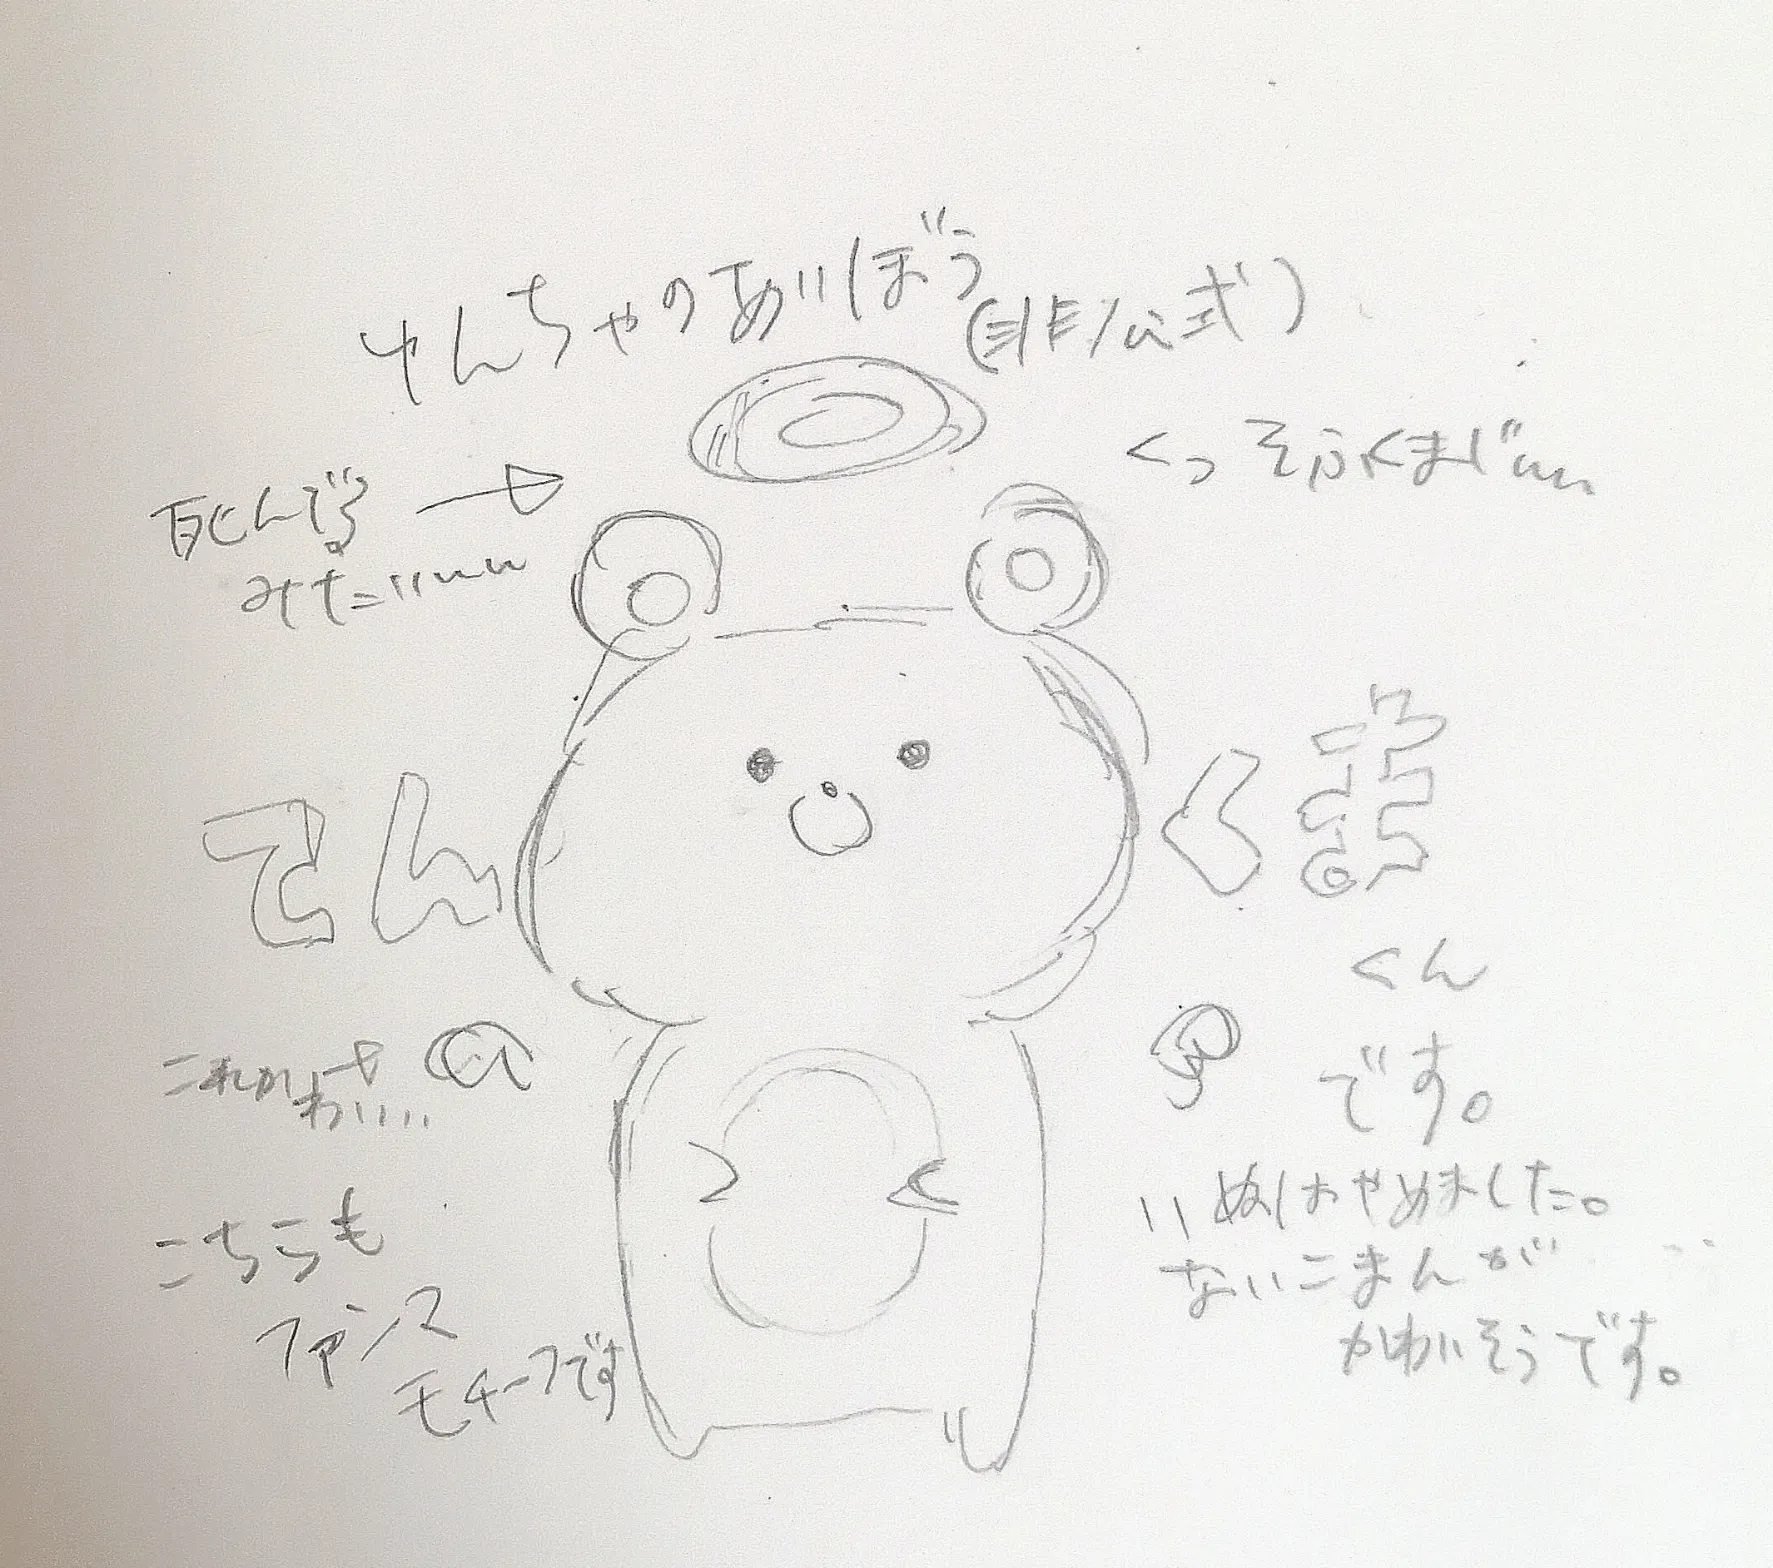 ゆんちゃのあいぼう
(非公式)
くっそふくまじぃぃ
死んでる
みたいぃぃ
てん
くま
くん
です。
これかわいい..
こちらも
ファンス
モチーフです
いぬはやめました。
ないこまんが
かわいそうです。